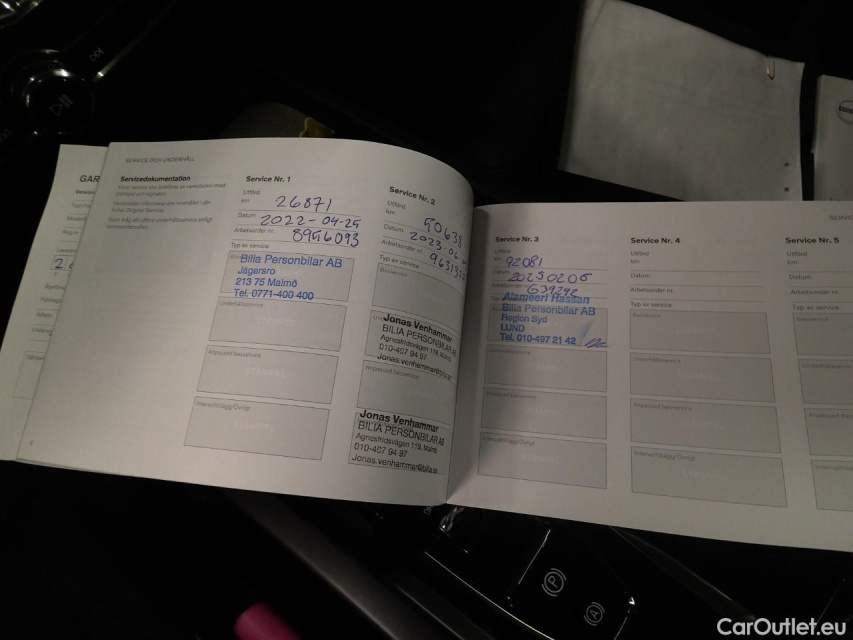 SERVICE OCH UNDERHÅLL
Servicedokumentation
GAR
Service Nr. 1
Utförd
km 26871
Datum 2022-04-25
Arbetsorder nr. 8956093
Typ av service
Bilia Personbilar AB
Jägersro
213 75 Malmö
Tel. 0771-400 400
Underhållsservice
Anpassad basservice
Intervalltillägg/Övrigt
Service Nr. 2
Utförd
km 50638
Datum
Arbetsorder nr.
Typ av service
Basservice
Jonas Venhammar
BILIA PERSONBILAR AB
Agnesfridsvägen 119, Malmö
010-407 94 97
Jonas.venhammar@bilia.se
Anpassad basservice
Jonas Venhammar
BILIA PERSONBILAR AB
Agnesfridsvägen 119, Malmö
010-407 94 97
Jonas.venhammar@bilia.se
Service Nr. 3
Utförd
km 92081
Datum 20250205
Arbetsorder nr. 639242
Alameeri Hassan
Bilia Personbilar AB
Region Syd
LUND
Tel. 010-497 21 42
Anpassad basservice
Intervalltillägg/Övrigt
Service Nr. 4
Utförd
km
Datum
Arbetsorder nr.
Typ av service
Basservice
Underhållsservice
Anpassad basservice
Intervalltillägg/Övrigt
Service Nr. 5
Utförd
km
Datum
Arbetsorder nr.
Typ av service
CarOutlet.eu